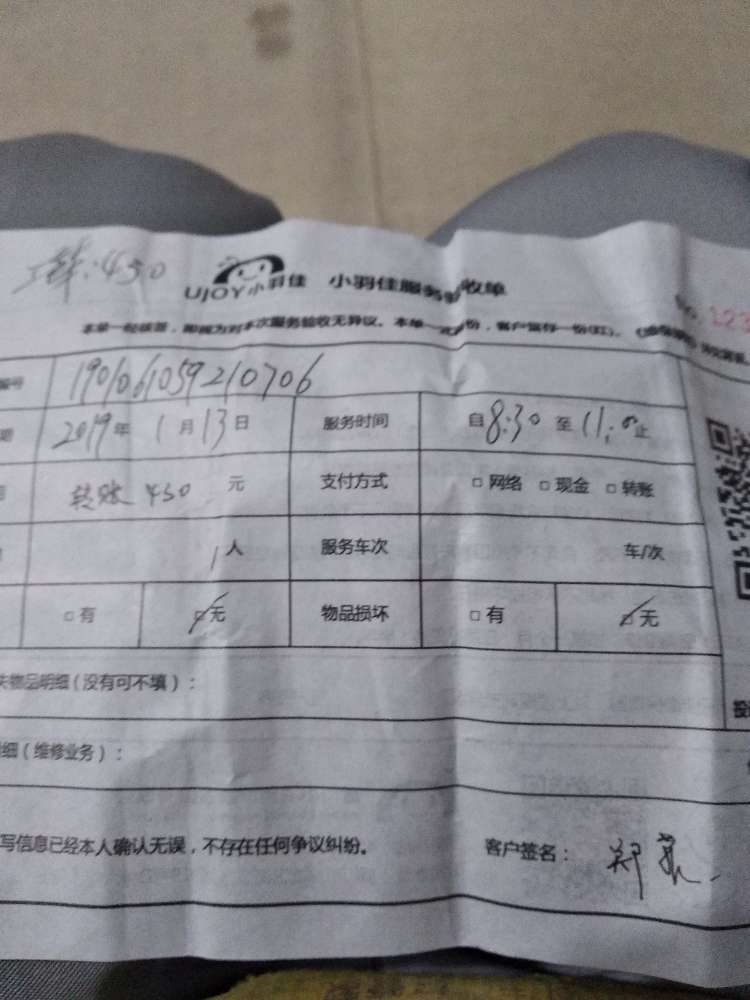 :430
UJOY小羽佳 小羽佳服务验收单
No. 123
本单一经核签,即视为对本次服务验收无异议。本单一式 份,客户留存一份(红)。
编号 190106105921070 6
期 2019年 1月13日 服务时间 自8:30至11:0止
转账 430 元 支付方式 □ 网络 □ 现金 □ 转账
1人 服务车次 车/次
□ 有 □ 无 物品损坏 □ 有 □ 无
失物品明细(没有可不填):
明细(维修业务):
写信息已经本人确认无误,不存在任何争议纠纷。 客户签名:郑
投